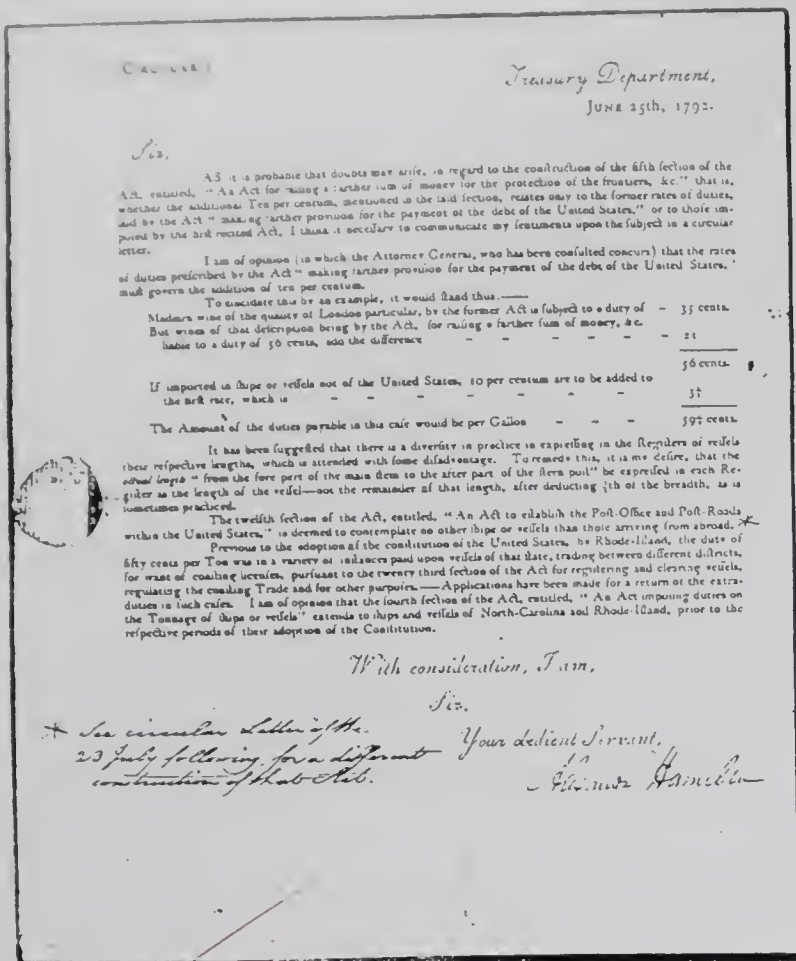 Treasury Department,
JUNE 25th, 1792.
Sir,
AS it is probable that doubts may arise, in regard to the construction of the fifth section of the
Act, entitled, "An Act for raising a farther sum of money for the protection of the frontiers, &c." that is,
whether the additional Ten per centum, mentioned in the said section, relates only to the former rates of duties,
laid by the Act "making farther provision for the payment of the debt of the United States," or to those im-
posed by the first recited Act, I think it necessary to communicate my sentiments upon the subject in a circular
letter.
I am of opinion (in which the Attorney General, who has been consulted concurs) that the rates
of duties prescribed by the Act "making farther provision for the payment of the debt of the United States,"
must govern the addition of ten per centum.
To elucidate this by an example, it would stand thus.——
Madeira wine of the quality of London particular, by the former Act is subject to a duty of - 35 cents.
But wines of that description being by the Act, for raising a farther sum of money, &c.
liable to a duty of 56 cents, add the difference - - - - - 21
56 cents.
If imported in ships or vessels not of the United States, 10 per centum are to be added to
the first rate, which is - - - - - - - 3½
The Amount of the duties payable in this case would be per Gallon - - - 59½ cents.
It has been suggested that there is a diversity in practice in expressing in the Registers of vessels
their respective lengths, which is attended with some disadvantage. To remedy this, it is my desire, that the
actual length "from the fore part of the main stem to the after part of the stern post" be expressed in each Re-
gister as the length of the vessel—not the remainder of that length, after deducting ths of the breadth, as is
sometimes practiced.
The twelfth section of the Act, entitled, "An Act to establish the Post-Office and Post-Roads
within the United States," is deemed to contemplate no other ships or vessels than those arriving from abroad. *
Previous to the adoption of the constitution of the United States, by Rhode-Island, the duty of
fifty cents per Ton was in a variety of instances paid upon vessels of that state, trading between different districts,
for want of coasting licenses, pursuant to the twenty third section of the Act for registering and clearing vessels,
regulating the coasting Trade and for other purposes.——Applications have been made for a return of the extra-
duties in such cases. I am of opinion that the fourth section of the Act, entitled, "An Act imposing duties on
the Tonnage of ships or vessels" extends to ships and vessels of North-Carolina and Rhode-Island, prior to the
respective periods of their adoption of the Constitution.
With consideration, I am,
Sir,
Your obedient Servant,
Alexander Hamilton
* See circular Letter of the
23 July following, for a different
construction of that